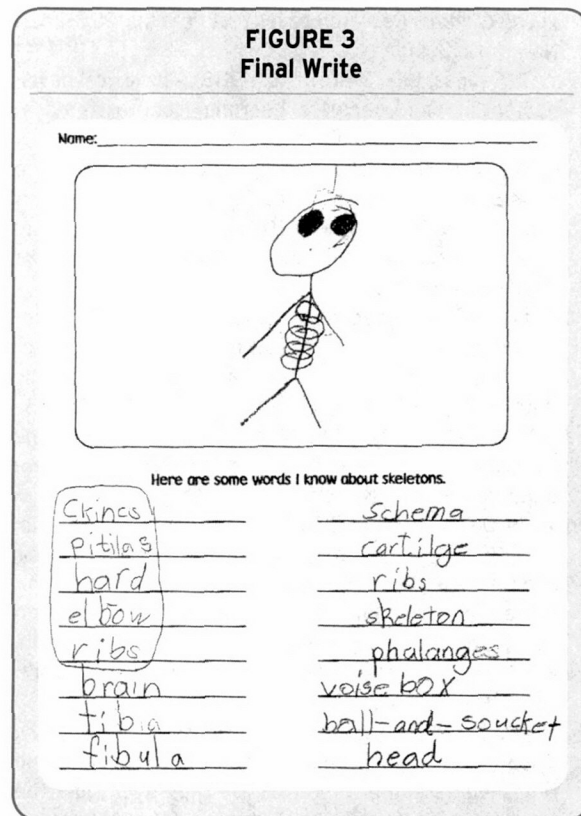 FIGURE 3
Final Write
Name:
Here are some words I know about skeletons.
Ckincs
pitilas
hard
elbow
ribs
brain
tibia
fibula
Schema
cartilge
ribs
skeleton
phalanges
voise box
ball-and-soucket
head